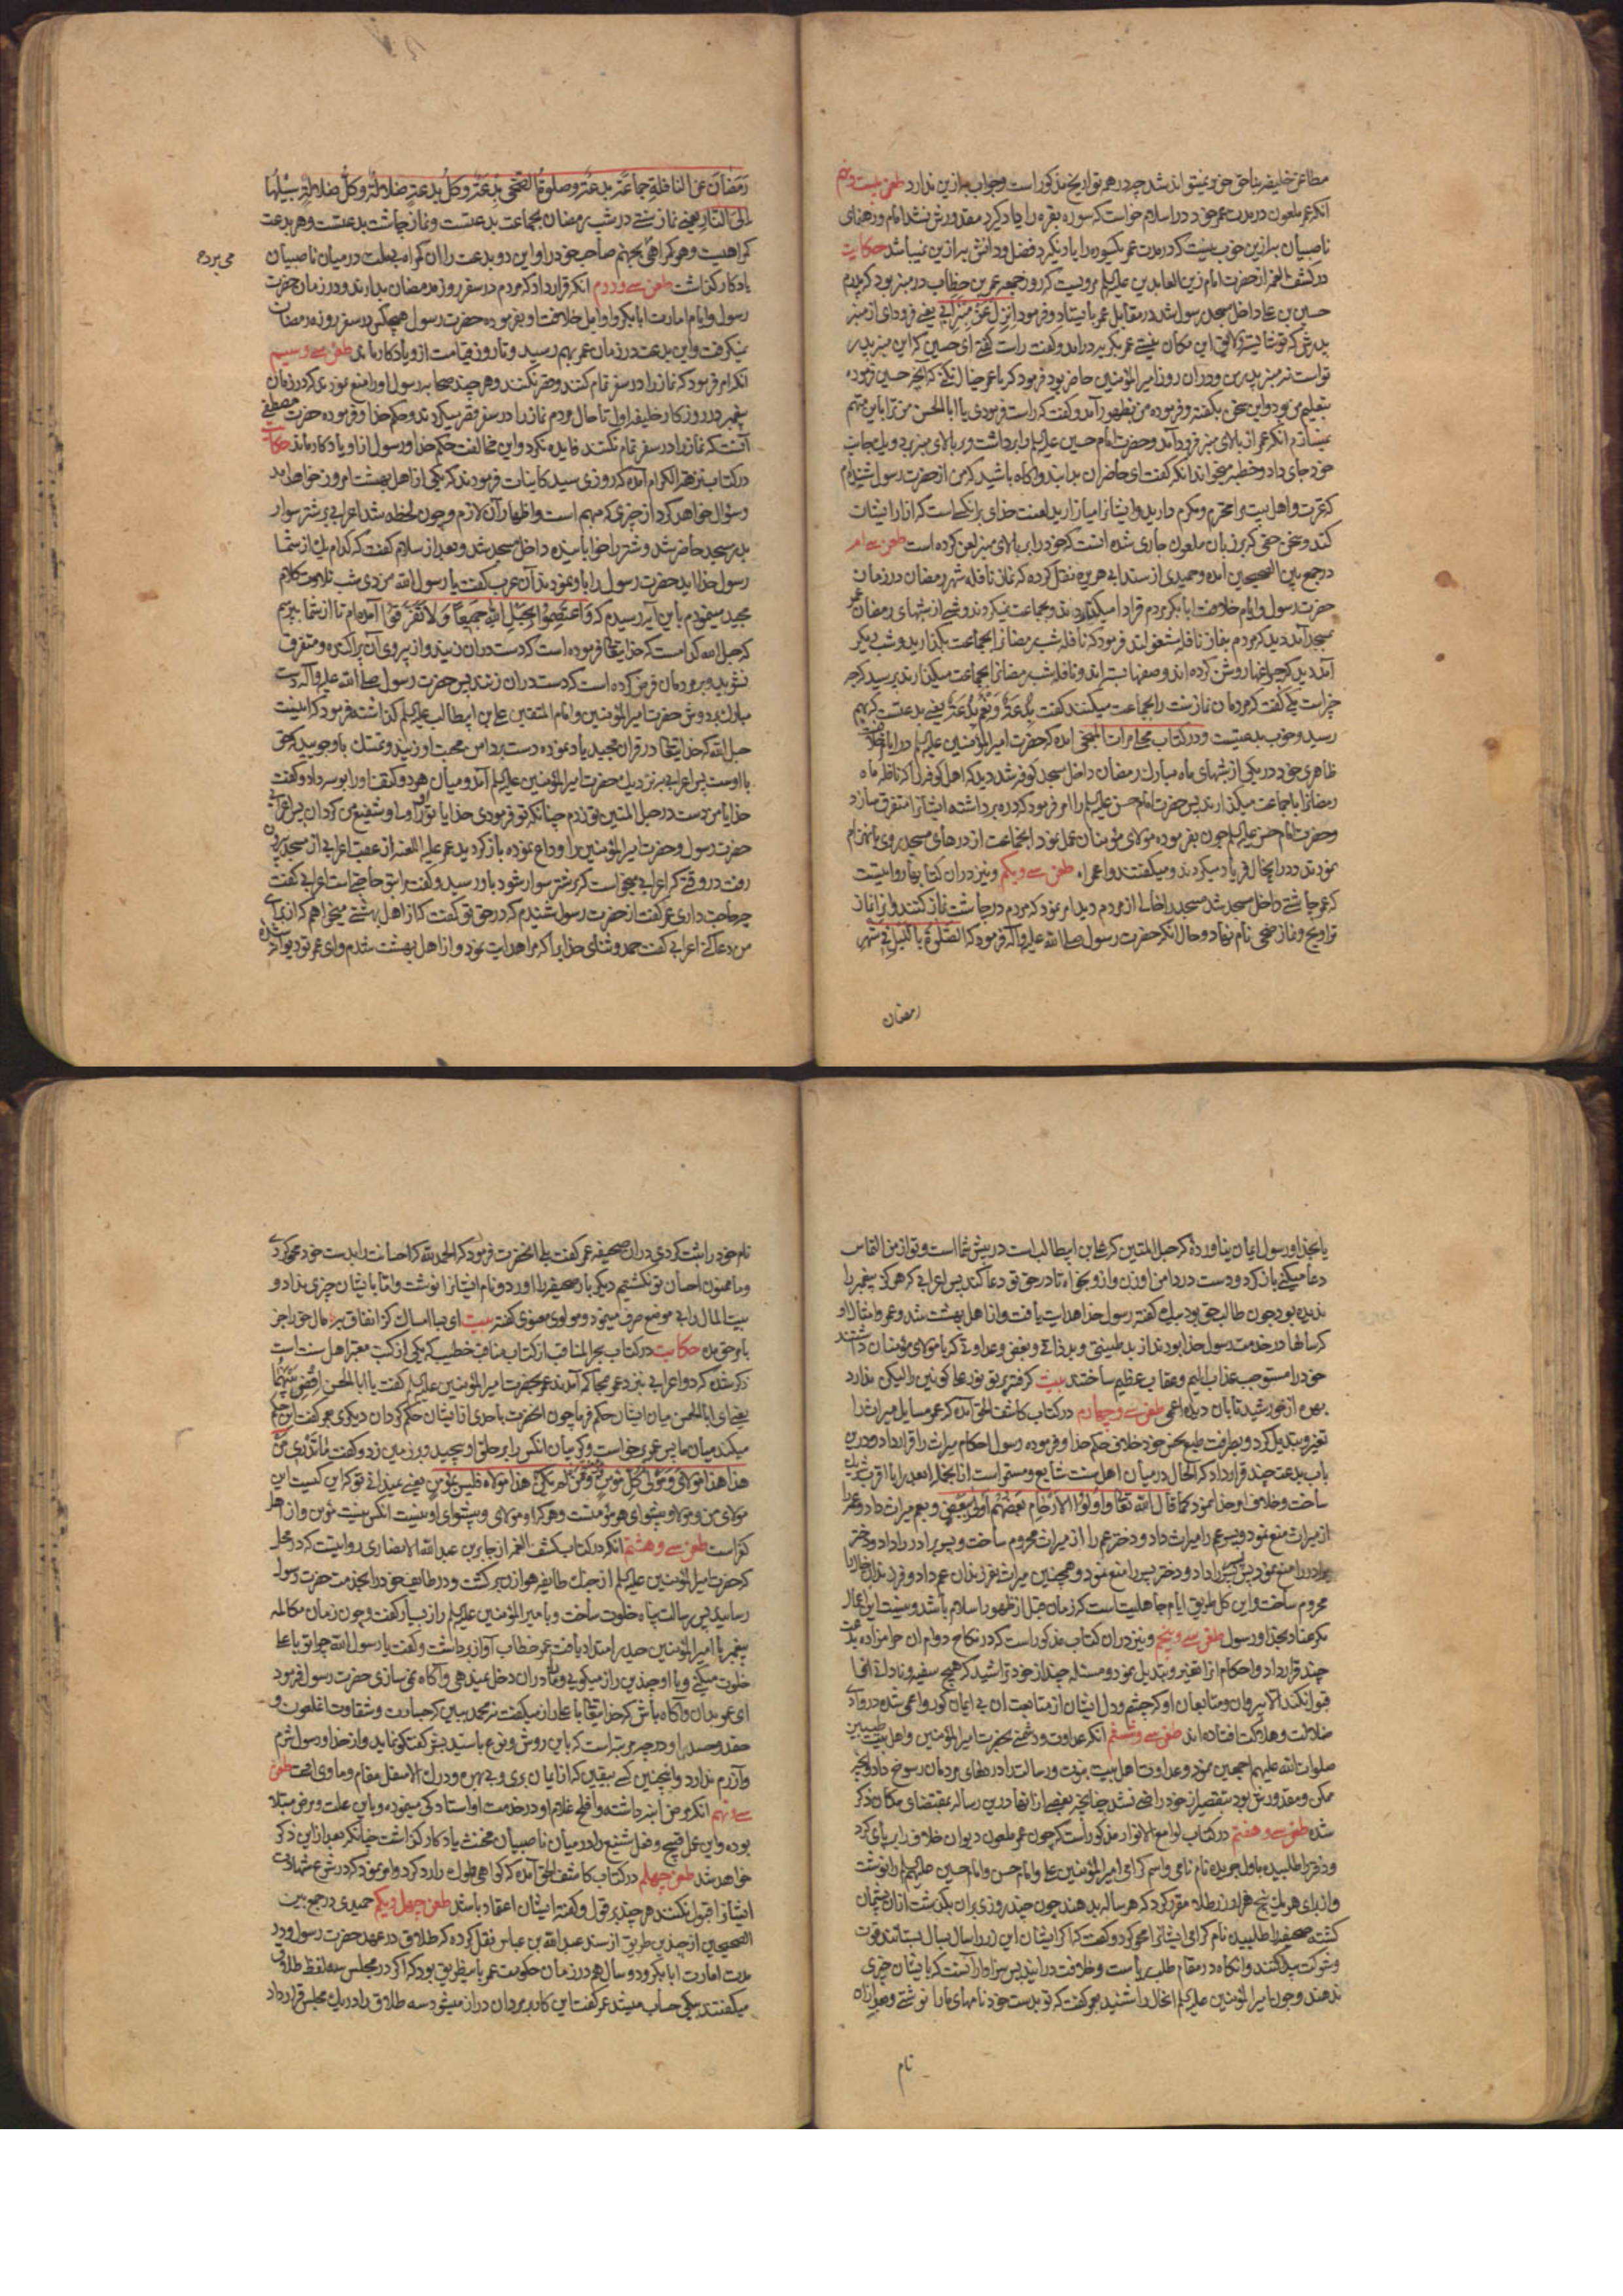 مطاعن خلیفه بناحق خود نمیتواند شد چه در همه تواریخ مذکور است و جواب به ازین ندارد طعن بیست و نهم
آنکه عمر ملعون در مدت عمر خود در اسلام خواست که سوره بقره را یاد گیرد مقدورش نشد امام و رهنمای
ناصبیان به ازین خوب نیست که در مدت عمر یکسوره را یاد نگیرد فضل و دانش به ازین نمیباشد حکایت
در کشف الغمه از حضرت امام زین العابدین علیه السلم مرویست که روز جمعه عمر بن خطاب در منبر بود که پدرم
حسین بن علی داخل مسجد رسول شد در مقابل عمر بایستاد و فرمود انزل عن منبر ابی یعنی فرود ای از منبر
پدرم که تو شایسته و لایق این مکان نیستی عمر بگریه درآمد و گفت راست گفتی ای حسین که این منبر پدر
تو است نه منبر پدر من و در آن روز امیر المؤمنین حاضر بود فرمود که یا عمر خیال نکنی که آنچه حسین فرموده
بتعلیم من بود و این سخن بگفته و فرموده من بظهور آمد و گفت که راست فرمودی یا ابا الحسن من ترا باین متهم
نمیسازم آنکه عمر از بالای منبر فرود آمد و حضرت امام حسین علیه السلم را برداشت و بر بالای منبر برد و یک جانب
خود جای داد و خطبه میخواند آنکه گفت ای حاضران بدانید و آگاه باشید که من از حضرت رسول شنیدم
که عترت و اهل بیت مرا محترم و مکرم دارید و ایشانرا میازارید لعنت خدای بر آنکسی است که ازار ایشان
کند و سخن حقی که بر زبان ملعون جاری شده اینست که خود را بر بالای منبر لعن کرده است طعن سی ام
در جمع بین الصحیحین آمده و حمیدی از سند ابی هریره نقل کرده که نماز نافله شهر رمضان در زمان
حضرت رسول و ایام خلافت ابابکر مردم فرادا میکذاردند و بجماعت نمیکردند و شبی از شبهای رمضان عمر
بمسجد آمد دید که مردم بنماز نافله مشغولند فرمود که نافله شب رمضانرا بجماعت بکذارید و شب دیگر
آمد دید که چراغها روشن کرده اند و صفها بسته اند و نافله شب رمضانرا بجماعت میکذارند پرسید که چه
خبر است یکی گفت که مردمان نماز سنت را بجماعت میکنند گفت بدعة و نعم بدعة یعنی بدعتست که بهم
رسید و خوب بدعتیست و در کتاب آمده که حضرت امیر المؤمنین علیه السلم در ایام خلافت
ظاهری خود در یکی از شبهای ماه مبارک رمضان داخل مسجد کوفه شد دید که اهل کوفه نافله ماه
رمضانرا باجماعت میکذارند پس حضرت امام حسن علیه السلم را امر فرمود که دره برداشته ایشانرا متفرق سازد
و حضرت امام حسن علیه السلم چون بفرموده مولای مؤمنان عمل نمود آنجماعت از درهای مسجد روی بانهزام
نمودند و در آنحال فریاد میکردند و میگفتند واعمراه طعن سی و یکم و نیز در آن کتاب روایتست
که عمر چاشتی داخل مسجد شد مسجد را خالی از مردم دید امر نمود که مردم در چاشت نماز کنند و آنرا نماز
تراویح و نماز ضحی نام نهاد و حال آنکه حضرت رسول صلی الله علیه و آله فرمود که الصلوة باللیل فی شهر
رمضان
رمضان عن النافلة جماعة بدعة و صلوة الضحی بدعة و کل بدعة ضلالة و کل ضلالة سبیلها
الی النار یعنی نماز سنتی در شب رمضان بجماعت بدعتست و نماز چاشت بدعتست و هر بدعت
گمراهیست و هر گمراهی بجهنم صاحب خود را و این دو بدعت را آن گمراه بی ملت در میان ناصبیان
می برد ع
یادگار گذاشت طعن سی و دوم آنکه قرار داد که مردم در سفر روزه رمضان بدارند و در زمان حضرت
رسول و ایام امارت ابابکر و اوایل خلافت او بفرموده حضرت رسول هیچکس در سفر روزه رمضان
نمیگرفت و این بدعت در زمان عمر بهم رسید و تا روز قیامت از او یادگار ماند طعن سی و سیم
آنکه امر فرمود که نماز را در سفر تمام کنند و قصر نکنند و هر چند صحابه رسول او را منع نمودند که در زمان
پیغمبر و در روزگار خلیفه اول تا حال مردم نماز را در سفر قصر میکردند و حکم خدا و فرموده حضرت مصطفی
آنست که نماز را در سفر تمام نکنند فایده نکرد و این مخالفت حکم خدا و رسول از او یادگار ماند حکایت
در کتاب زهر الکرام آمده که روزی سید کاینات فرمودند که یکی از اهل بهشت امروز خواهد آمد
و سؤال خواهد کرد از چیزی که مبهم است و اظهار آن لازم و چون لحظه شد اعرابی بر شتر سوار
بدر مسجد حاضر شد و شتر را خوابانیده داخل مسجد شد و بعد از سلام گفت که کدام یک از شما
رسول خدائید حضرت رسول را باو نمودند آن عرب گفت یا رسول الله من دی شب تلاوت کلام
مجید مینمودم باین آیه رسیدم که واعتصموا بحبل الله جمیعا و لا تفرقوا آمده ام تا از شما بپرسم
که حبل الله کدامست که خدایتعالی فرموده است که دست در آن زنید و از پیروی آن پراکنده و متفرق
نشوید و بر مردمان فرض کرده است که دست در آن زنند پس حضرت رسول صلی الله علیه و آله دست
مبارک بر دوش حضرت امیر المؤمنین و امام المتقین علی بن ابیطالب علیه السلم گذاشته فرمود که اینست
حبل الله که خدایتعالی در قران مجید یاد نموده دست بر دامن محبت او زنید و تمسک باو جوئید که حق
با اوست پس اعرابی به نزدیک حضرت امیر المؤمنین علیه السلم آمد و میان هر دو کتف او را بوسه داد و گفت
خدایا من دست در حبل المتین تو زدم چنانکه تو فرمودی خدایا تو او را و شفیع من گردان پس اعرابی
حضرت رسول و حضرت امیر المؤمنین را وداع نموده باز گردید عمر علیه اللعنه از عقب اعرابی از مسجد بیرون
رفت در وقتی که اعرابی میخواست که بر شتر سوار شود باو رسید و گفت مرا بتو حاجتی است اعرابی گفت
چه حاجت داری عمر گفت از حضرت رسول شنیدم که در حق تو گفت که از اهل بهشتی میخواهم که از برای
من دعا کنی اعرابی گفت حمد و ثنای خدایرا که مرا هدایت نمود و از اهل بهشت شدم وای عمر تو دیوانه شده
یا بخدا و رسول ایمان نیاورده که حبل المتین که علی بن ابیطالب است در پیش شما است و تو از من التماس
دعا میکنی باز گرد و دست در دامن او زن و از و بخواه تا در حق تو دعا کند پس اعرابی که هرگز پیغمبر را
ندیده بود چون طالب حق بود بیک گفته رسول خدا هدایت یافت و از اهل بهشت شد و عمر و امثال او
که سالها در خدمت رسول خدا بودند از بد طینتی و بد ذاتی و بغض و عداوتی که با مولای مؤمنان داشتند
خود را مستوجب عذاب الیم و عقاب عظیم ساختند بیت گرفته پرتو نور علی کونین را لیکن ندارد
بهره از خورشید تابان دیده اعمی طعن سی و چهارم در کتاب کاشف الحق آمده که عمر مسایل میراث را
تغیر و تبدیل کرد و بطرفت طبع نحس خود خلاف حکم خدا و فرموده رسول احکام میراث را قرار داد و درین
باب بدعت چند قرار داد که الحال در میان اهل سنت شایع و مستمر است از آنجمله ابعد را با اقرب شریک
ساخت و خلاف امر خدا نمود کما قال الله تعالی و اولوا الارحام بعضهم اولی ببعض و بعم میراث داد و عمه را
از میراث منع نمود و پسر عم را میراث داد و دختر عم را از میراث محروم ساخت و پسر برادر را داد و دختر
برادر را منع نمود پسر پسر را داد و دختر پسر را منع نمود و همچنین میراث بفرزندان عم داد و فرزندان خال را
محروم ساخت و این کل طریق ایام جاهلیت است که زمان قبل از ظهور اسلام باشد و نیست این اعمال
مگر عناد بخدا و رسول طعن سی و پنجم و نیز در آن کتاب مذکور است که در نکاح دوام آن حرامزاده بدعت
چند قرار داد و احکام آنرا تغیر و تبدیل نمود و مسئله چند از خود تراشید که هیچ سفیه و نادان آنها
قبول نکند الا پیروان و متابعان او که چشم و دل ایشان از متابعت آن بی ایمان کور و اعمی شده در وادی
ضلالت و هلاکت افتاده اند طعن سی و ششم آنکه عداوت و دشمنی بحضرت امیر المؤمنین و اهل بیت طیبین
صلوات الله علیهم اجمعین نمود و عداوت اهل بیت نبوت و رسالت را در دلهای مردمان رسوخ داد و آنچه
ممکن و مقدورش بود بتقصیر از خود راضی نشد چنانچه بعضی از آنها درین رساله بمقتضای مکان ذکر
شد طعن سی و هفتم در کتاب لوامع الانوار مذکور است که چون عمر ملعون دیوان خلاف را بر پای کرد
و دفتر را طلبیده باول جریده نام نامی و اسم گرامی امیر المؤمنین علی و امام حسن و امام حسین علیهم السلم را نوشت
و از برای هر یک پنج هزار زر طلا مقرر کرد که هر ساله بدهند چون چند روزی بر آن بگذشت از آن پشیمان
گشته صحیفه را طلبیده نام گرامی ایشانرا محو کرد و گفت که اگر ایشان این زر را سال بسال بستانند قوت
و شوکت پیدا کنند و آنگاه در مقام طلب ریاست و خلافت در آیند پس سزاوار آنست که بایشان چیزی
ندهند و چون امیر المؤمنین علیه السلم آنحال را شنید بعمر گفت که تو بدست خود نامهای ما را نوشتی و بعد از آن
نام
نام خود را ثبت کردی در آن صحیفه عمر گفت بلی آنحضرت فرمود که الحمد لله که احسانت را بدست خود محو کردی
و ما ممنون احسان تو نگشتیم دیگر بار صحیفه را آورد و نام ایشانرا نوشت و اما بایشان چیزی نداد و
بیت المال را بی موضع صرف مینمود و مولوی معنوی گفته بیت ای بسا امساک کز انفاق به مال حق را جز
بامر حق مده حکایت در کتاب بحر المناقب از کتاب مناقب خطیب که یکی از کتب معتبر اهل سنت است
ذکر شده که دو اعرابی بنزد عمر بمحاکمه آمدند عمر بحضرت امیر المؤمنین علیه السلم گفت یا ابا الحسن اقض بینهما
یعنی ای ابا الحسن میان ایشان حکم فرما چون آنحضرت با احدی از ایشان حکم کرد آن دیگری بعمر گفت این حکم
میکند میان ما پس عمر برخواست و گریبان آنکس را بر حلق او پیچید و بر زمین زد و گفت ما تدری من
هذا هذا مولای و مولی کل مؤمن و من لم یکن هذا مولاه فلیس بمؤمن یعنی نمیدانی تو که این کیست این
مولای من و مولا و پیشوای هر مؤمنست و هر که را او مولای و پیشوای او نیست آنکس نیست مؤمن و از اهل
کفر است طعن سی و هشتم آنکه در کتاب کشف الغمه از جابر بن عبد الله الانصاری روایتست که در محلی
که حضرت امیر المؤمنین علیه السلم از جنگ طایفه هوازن برگشت و در طایف خود را بخدمت حضرت رسول
رسانید پس رسالت پناه خلوت ساخت و با امیر المؤمنین علیه السلم راز بسیار گفت و چون زمان مکالمه
پیغمبر با امیر المؤمنین حیدر امتداد یافت عمر خطاب آواز برداشت و گفت یا رسول الله چرا تو با علی
خلوت میکنی و با او چندین راز میگویی و ما را در آن دخل نمیدهی و آگاه نمی سازی حضرت رسول فرمود
ای عمر بدان و آگاه باش که خدایتعالی با علی راز میگفت نه محمد ببین که جسارت و شقاوت آن ملعون و
حقد و حسد او در چه مرتبه است که باین روش و نوع با سید بشر گفتگو نماید و از خدا و رسول شرم
و آزرم ندارد و اینچنین کسی بیقین که از ایمان بری و بی بهره و درک الاسفل مقام و ماوی اوست طعن
سی و نهم آنکه مرض ابنه داشته و افلح غلام او در خدمت او استادگی مینموده و باین علت و مرض مبتلا
بوده و این عمل قبیح و فعل شنیع را در میان ناصبیان مخنث یادگار گذاشت چنانکه بعد ازین ذکر
خواهد شد طعن چهلم در کتاب کاشف الحق آمده که گواهی مملوک را رد کرد و امر نمود که در شرع شهادت
ایشانرا قبول نکنند هر چند بر قول و گفته ایشان اعتقاد باشد طعن چهل و یکم حمیدی در جمع بین
الصحیحین از چندین طریق از سند عبد الله بن عباس نقل کرده که طلاق در عهد حضرت رسول و در
مدت امارت ابابکر و دو سال هم در زمان حکومت عمر باینطریق بود که اگر در مجلس سه لفظ طلاق
میگفتند یکی حساب میشد عمر گفت این کار بر مردان دراز میشود سه طلاق را در یک مجلس قرار داد